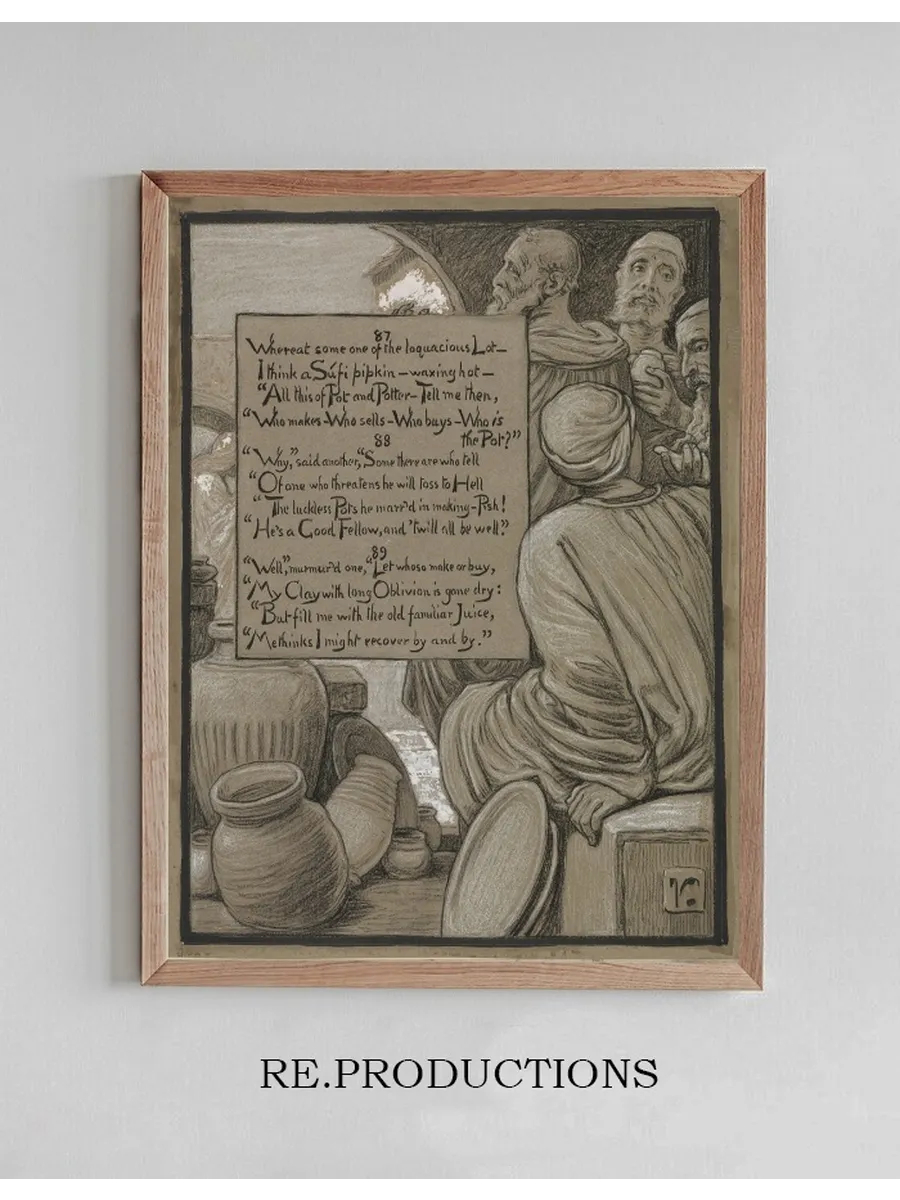 87
Whereat some one of the loquacious Lot—
I think a Súfi pipkin—waxing hot—
"All this of Pot and Potter—Tell me then,
"Who makes—Who sells—Who buys—Who is
the Pot?"
88
"Why," said another, "Some there are who tell
"Of one who threatens he will toss to Hell
"The luckless Pots he marr'd in making—Pish!
"He's a Good Fellow, and 'twill all be well."
89
"Well," murmur'd one, "Let whoso make or buy,
"My Clay with long Oblivion is gone dry:
"But fill me with the old familiar Juice,
"Methinks I might recover by and by."
V.
RE.PRODUCTIONS